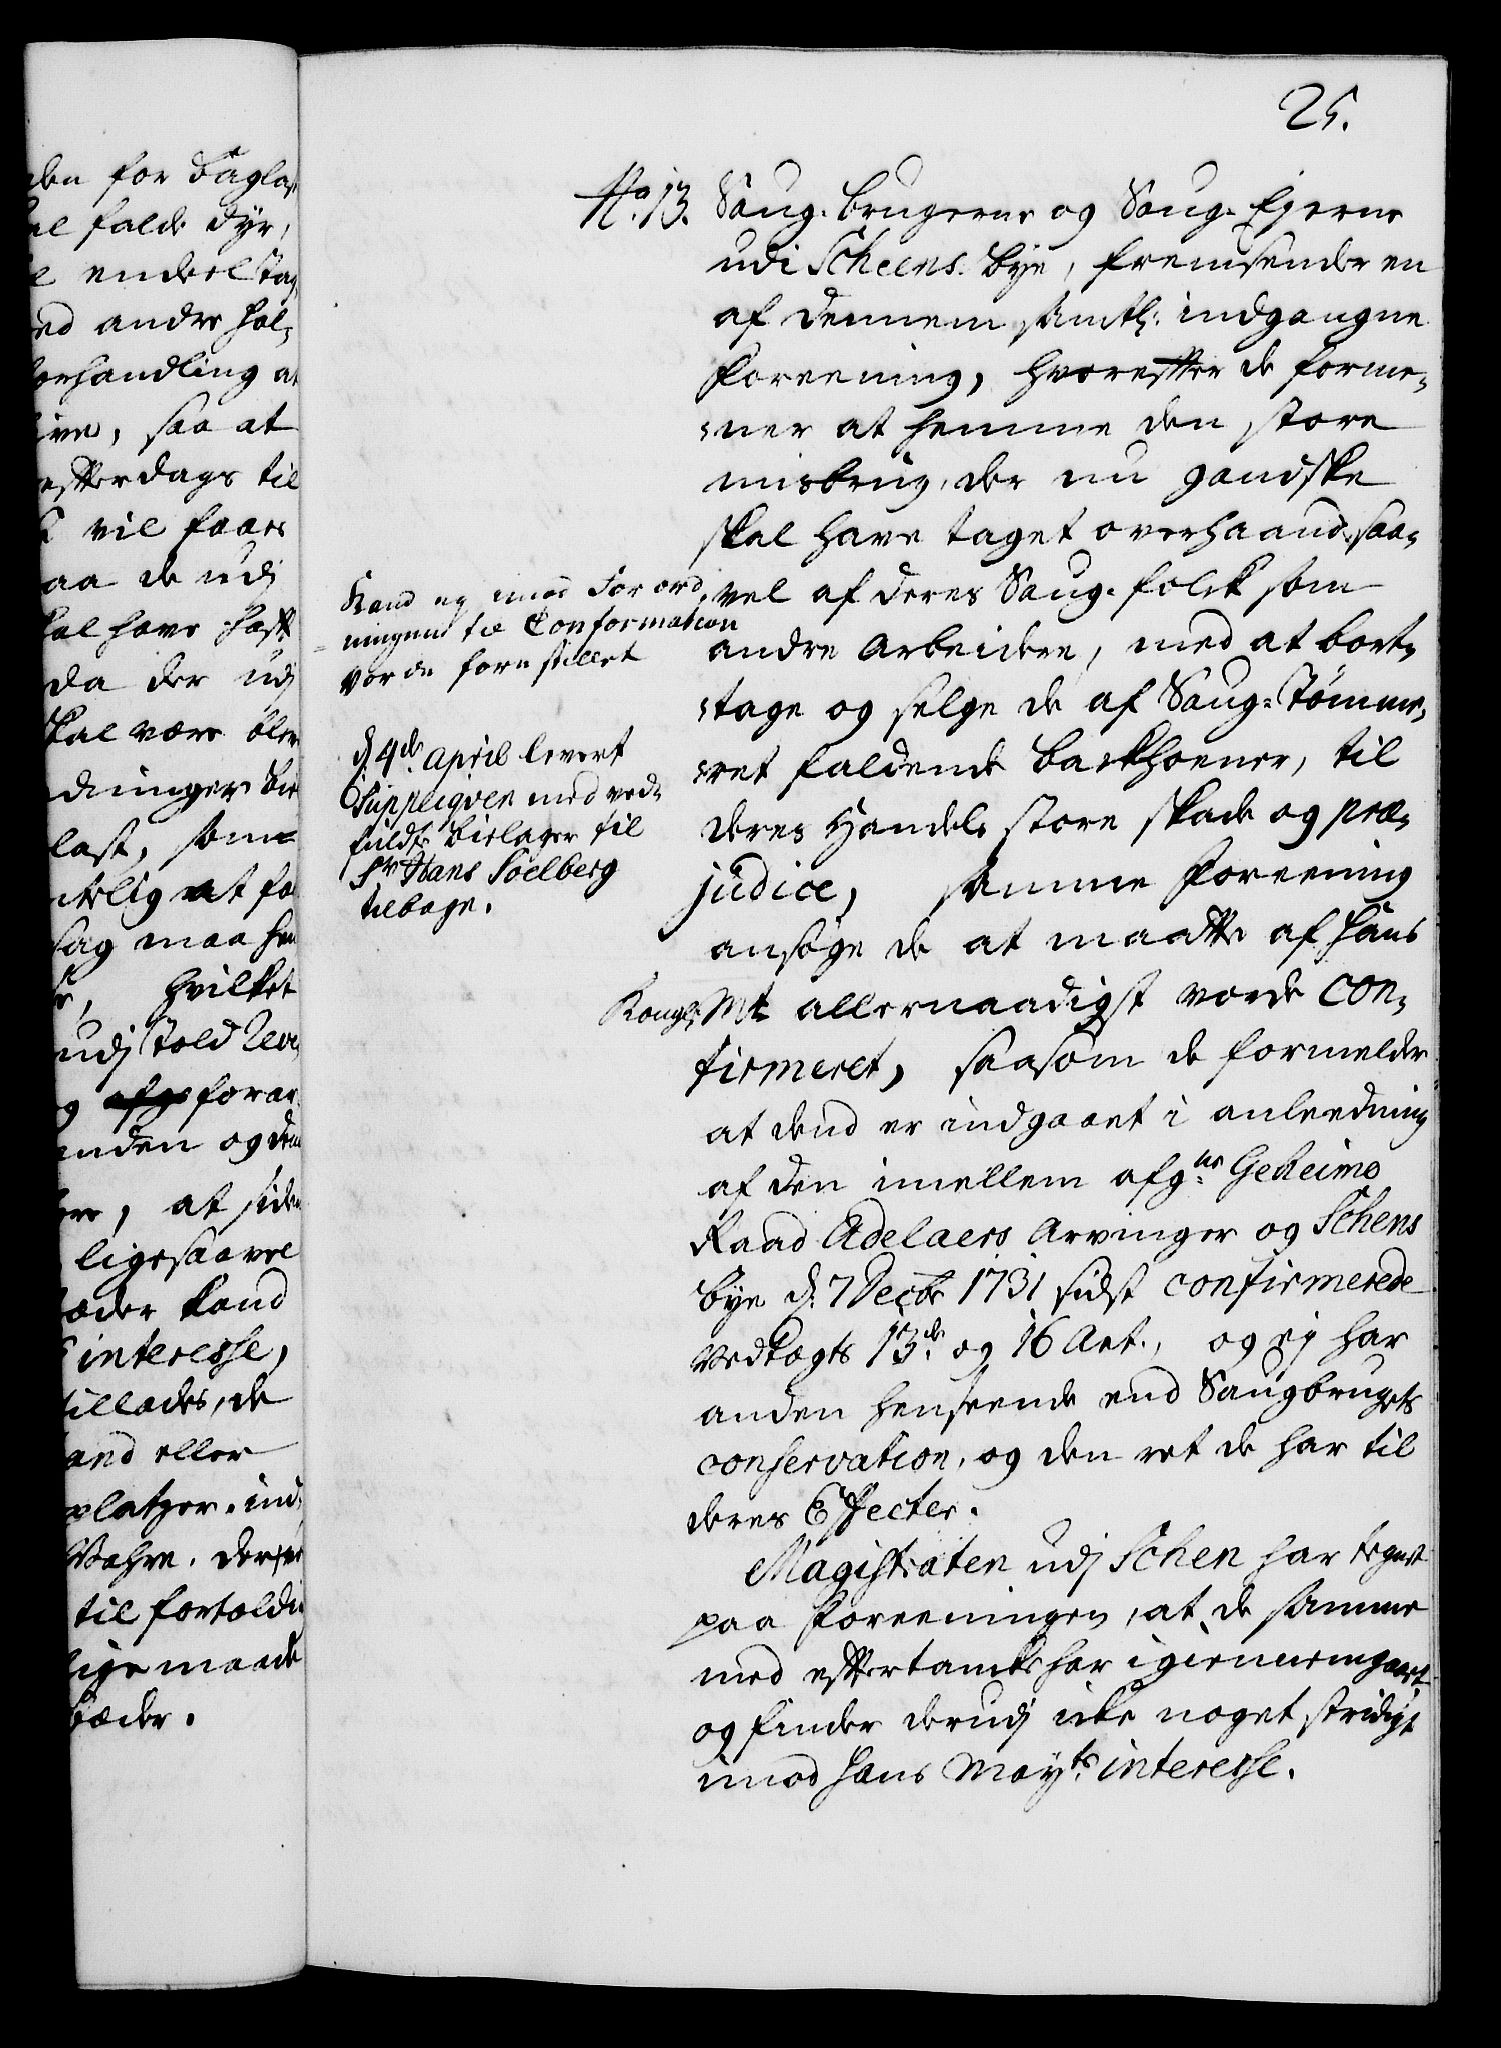 25.
No. 13. Saug-brugerne og Saug-Ejerne
udi Scheens bye, fremsender en
af dennem samtl: indgangne
Foreening, hvorefter de forme-
-ner at hemme den store
misbrug, der nu gandske
skal have taget overhaand, saa-
vel af deres Saug-folck som
andre Arbeidere, med at bort-
-tage og selge de af Saug-Tømme-
-ret faldende backhoener, til
deres Handels store skade og præ-
judice, samme Foreening
ansøge de at maatte af Hans
Kongl: Mt allernaadigst vorde con-
firmeret, saasom de formelder
at dend er indgaaet i anleedning
af den imellem afg:ne Geheime
Raad Adelaers Arvinger og Schens
bye d. 7 Decbr 1731 sidst confirmerede
Vedtægts 13de og 16 Art., og ej har
anden henseende end Saugbrugets
conservation, og den ret de har til
deres Effecter.
Magistraten udj Schen har tegnet
paa Foreeningen, at de samme
med eftertancke har igiennemgaaet
og finder derudj icke noget stridigt
imod Hans Mayts interesse.
Kand ej imod Forord
-ningen til Conformation
vorde forestillet
d. 4de April levert
Suppliqven med ved-
føldte bielager til
Sr Hans Söelberg
tilbage.
den for
falde dyr,
endeel
andre
forhandling at
saa at
efterdags til
vil faaes
aa de udj
have haft
da der udj
skal være
dninger
last, som
at
sag maa
hvilket
udj Told
forar
inden og
at siden
ligesaavel
kand
interesse,
tillades, de
eller
platzer, ind
Vahre, der
til fortoldi
lige maade